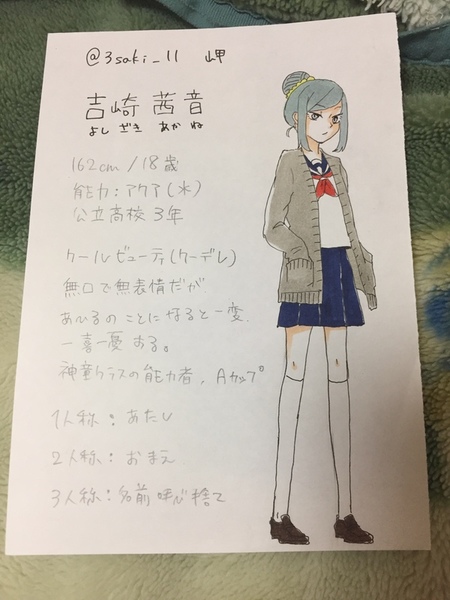 @3saki_11 岬
吉崎 茜音
よし ざき あか ね
162cm/18歳
能力:アクア(水)
公立高校3年
クールビューティ(クーデレ)
無口で無表情だが
あひるのことになると一変
一喜一憂する。
神童クラスの能力者、Aカップ
1人称:あたし
2人称:おまえ
3人称:名前呼び捨て